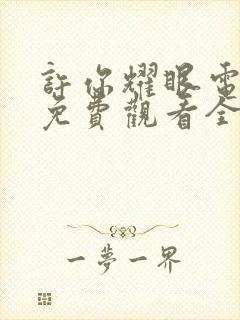 許你耀眼電
免費觀看全
一夢一界